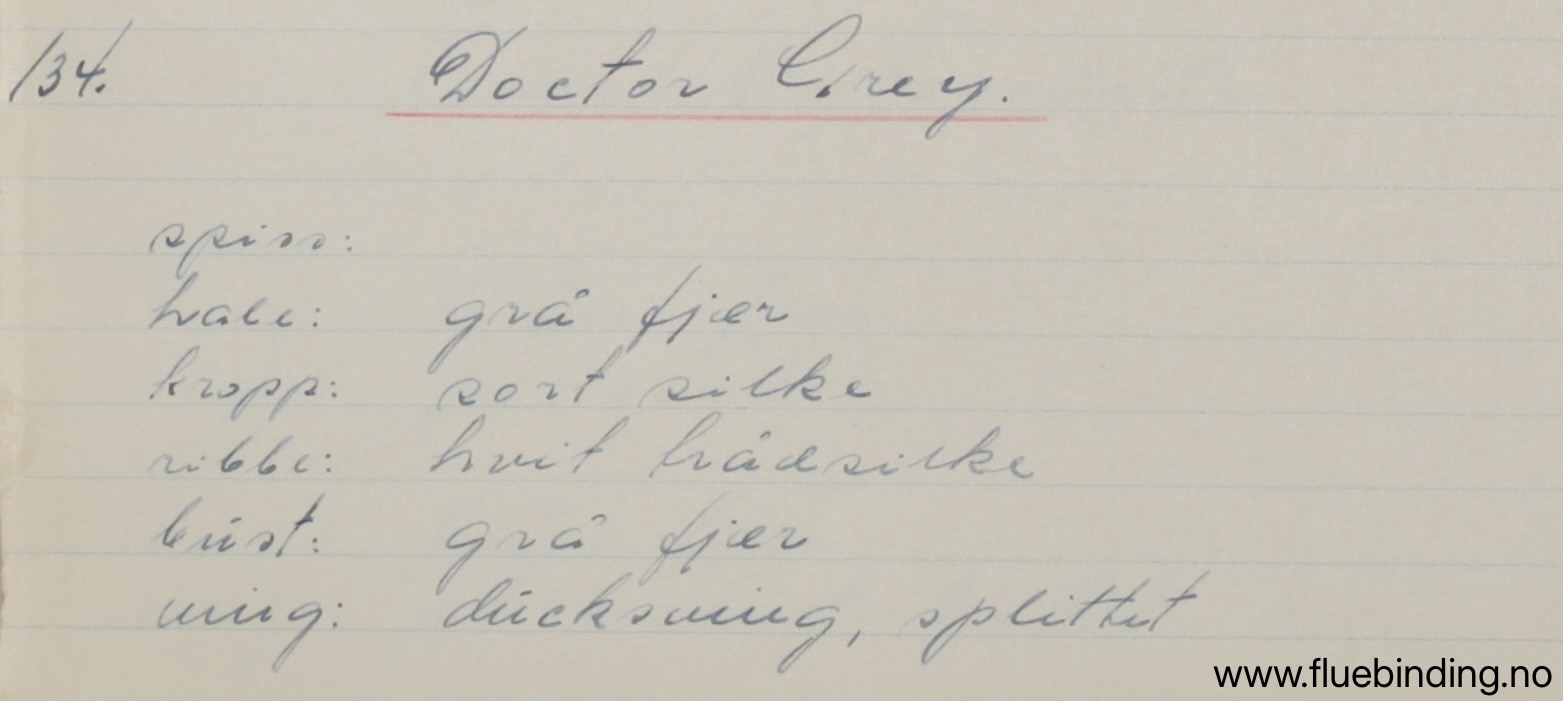 134. Doctor Grey.
spiss:
hale: grå fjær
kropp: sort silke
ribbe: hvit trådsilke
búst: grå fjær
ving: dúckswing, splittet
www.fluebinding.no